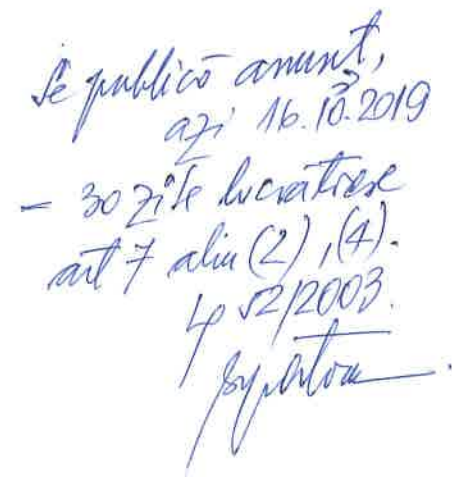 Se publică anunț,
azi 16.10.2019
- 30 zile lucrătoare
art 7 alin (2), (4).
52/2003.